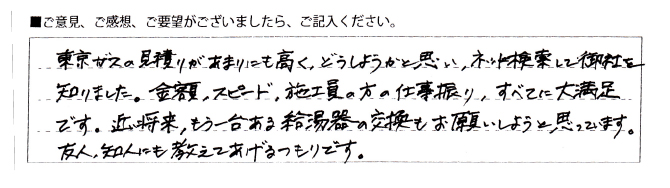 ■ご意見、ご感想、ご要望がございましたら、ご記入ください。
東京ガスの見積りがあまりにも高く、どうしようかと思い、ネット検索して御社を
知りました。金額、スピード、施工員の方の仕事振り、すべてに大満足
です。近い将来、もう一台ある給湯器の交換もお願いしようと思っています。
友人、知人にも教えてあげるつもりです。